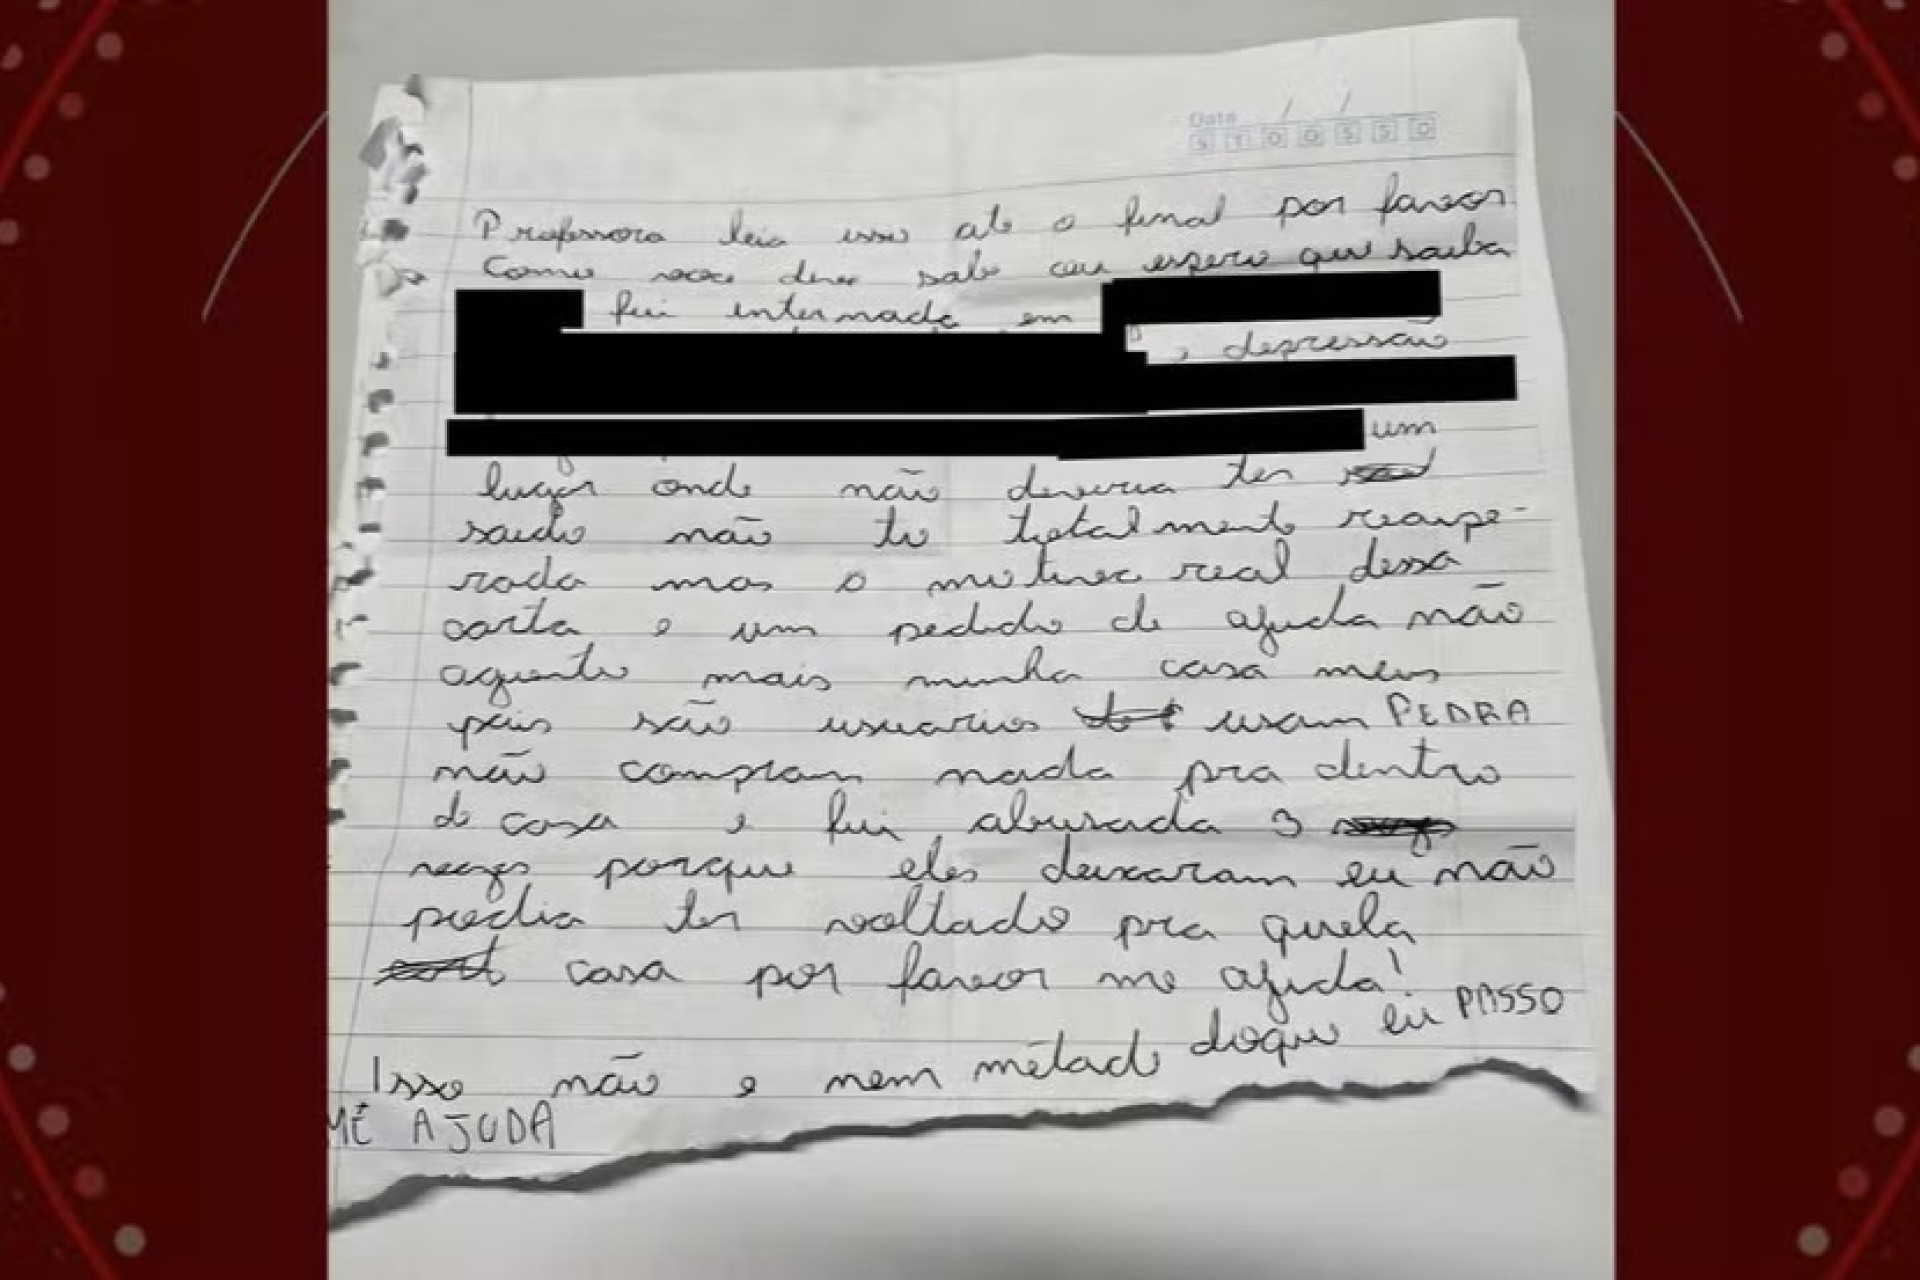 Data / /
S T Q Q S S D
Professora leia isso ate o final por favor
Como voce deve sabe ou espero que saiba
fui internada em
, depressão
um
lugar onde não deveria ter
saido não to totalmente recupe-
rada mas o motivo real dessa
carta e um pedido de ajuda não
aguento mais minha casa meus
pais são usuarios usam PEDRA
não compram nada pra dentro
de casa e fui abusada 3
vezes porque eles deixaram eu não
podia ter voltado pra quela
casa por favor me ajuda!
Isso não e nem metade doque eu PASSO
ME AJUDA